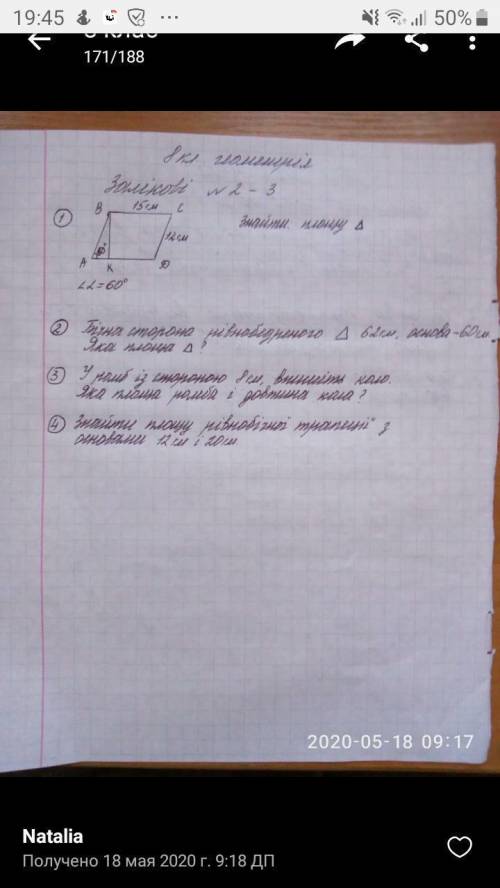 19:45
50%
8 клас
171/188
8 кл. геометрія
Залікові №2-3
1
B 15см C
12см
A K D
∠L=60°
Знайти площу Δ
2 Бічна сторона рівнобедреного Δ 62см, основа-60см.
Яка площа Δ?
3 У ромб із стороною 8см, впишіть коло.
Яка площа ромба і довжина кола?
4 Знайти площу рівнобічної трапеції з
основами 12см і 20см
2020-05-18 09:17
Natalia
Получено 18 мая 2020 г. 9:18 ДП